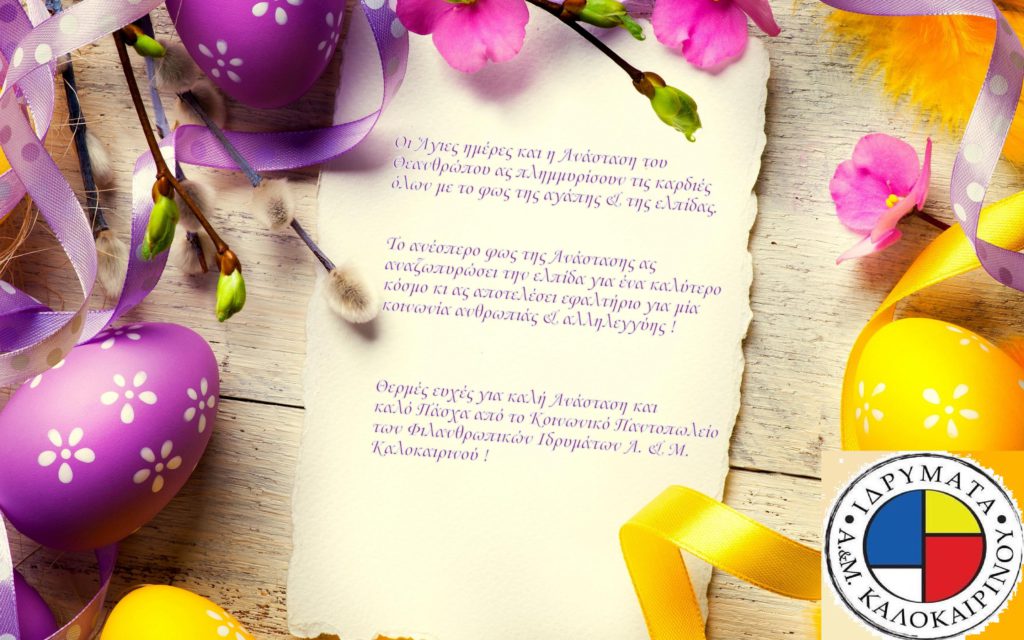 Οι Άγιες ημέρες και η Ανάσταση του
Θεανθρώπου ας πλημμυρίσουν τις καρδιές
όλων με το φως της αγάπης & της ελπίδας.
Το ανέσπερο φως της Ανάστασης ας
αναζωπυρώσει την ελπίδα για ένα καλύτερο
κόσμο κι ας αποτελέσει εφαλτήριο για μία
κοινωνία ανθρωπιάς & αλληλεγγύης !
Θερμές ευχές για καλή Ανάσταση και
καλό Πάσχα από το Κοινωνικό Παντοπωλείο
των Φιλανθρωπικών Ιδρυμάτων Α. & Μ.
Καλοκαιρινού !
ΙΔΡΥΜΑΤΑ
Α.&Μ. ΚΑΛΟΚΑΙΡΙΝΟΥ